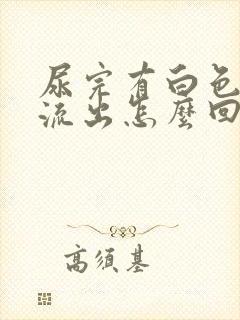 尿完有白色
流出怎麼回
高須基